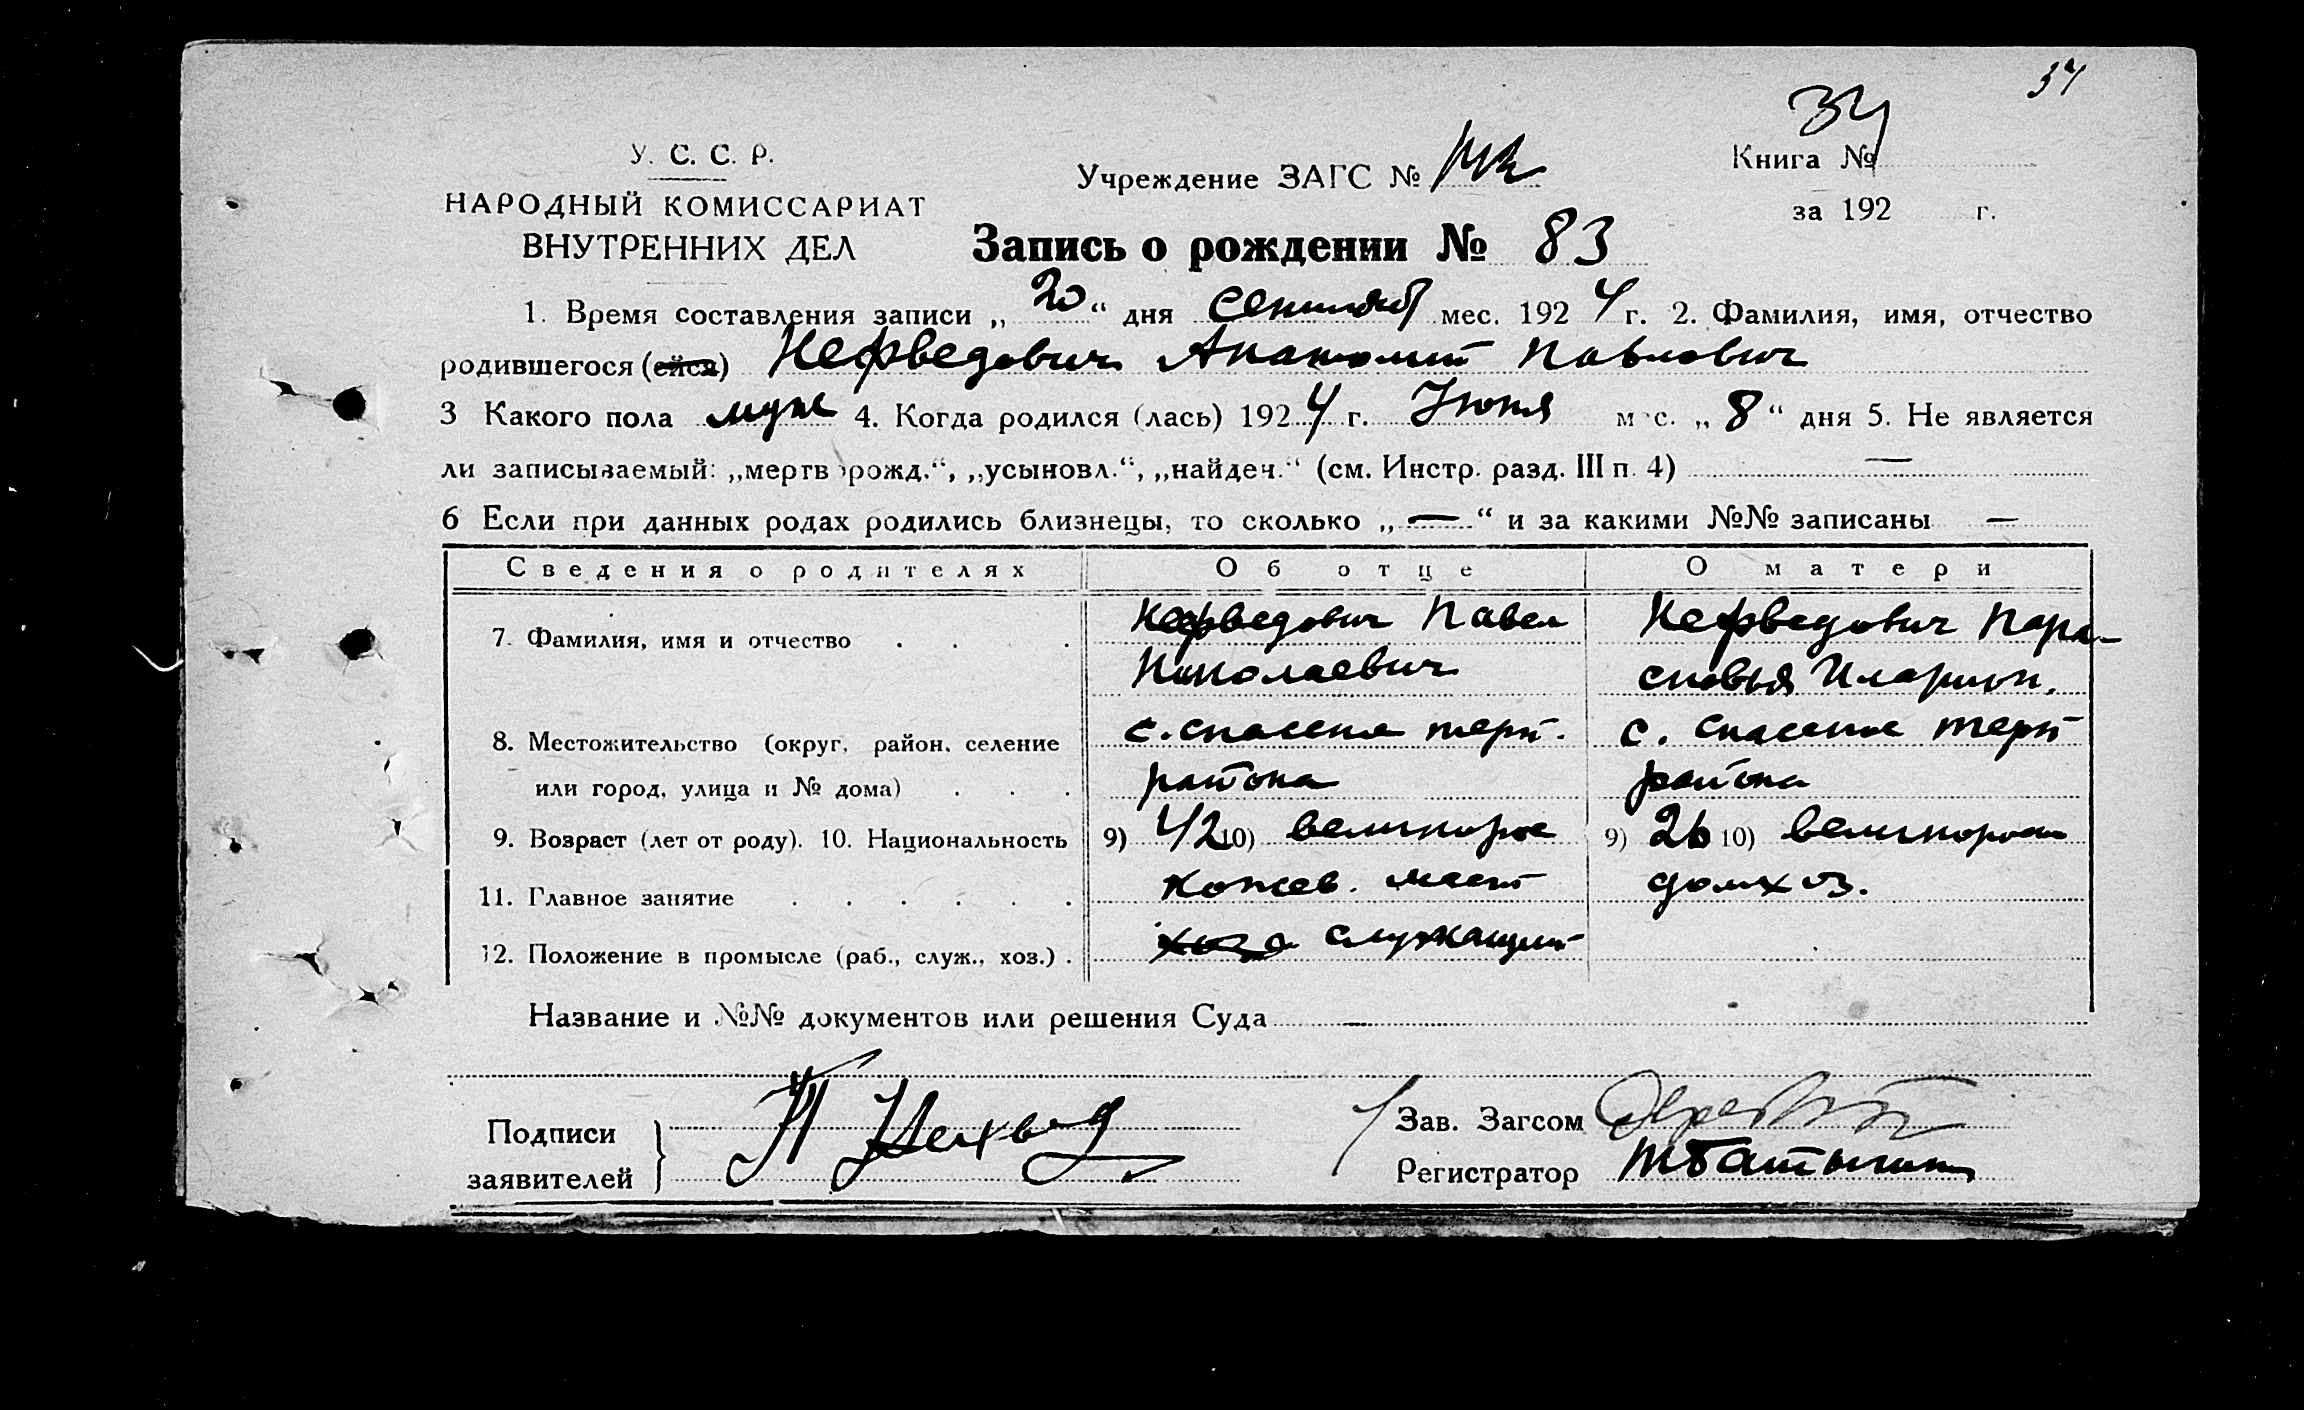 37
34
У. С. С. Р.
НАРОДНЫЙ КОМИССАРИАТ
ВНУТРЕННИХ ДЕЛ
Учреждение ЗАГС №
Книга №
за 192 г.
Запись о рождении № 83
1. Время составления записи „20“ дня сентяб мес. 1924 г. 2. Фамилия, имя, отчество
родившегося (ейся) Нефведович Анатолий Павлович
3 Какого пола муж 4. Когда родился (лась) 1924 г. Июня мес. „8“ дня 5. Не является
ли записываемый: „мертворожд.“, „усыновл.“, „найден.“ (см. Инстр. разд. III п. 4) —
6 Если при данных родах родились близнецы, то сколько „—“ и за какими №№ записаны —
Сведения о родителях Об отце О матери
7. Фамилия, имя и отчество . . . Нефведович Павел Нефведович Пара-
Николаевич сковья Иларион.
8. Местожительство (округ, район, селение с. спасение терп. с. спасение терп
или город, улица и № дома) . . . района района
9. Возраст (лет от роду). 10. Национальность 9) 42 10) великорос 9) 26 10) великорос
11. Главное занятие . . . . . . кожев. маст домхоз.
12. Положение в промысле (раб., служ., хоз.) . служащий
Название и №№ документов или решения Суда —
Подписи
заявителей
Зав. Загсом
Регистратор